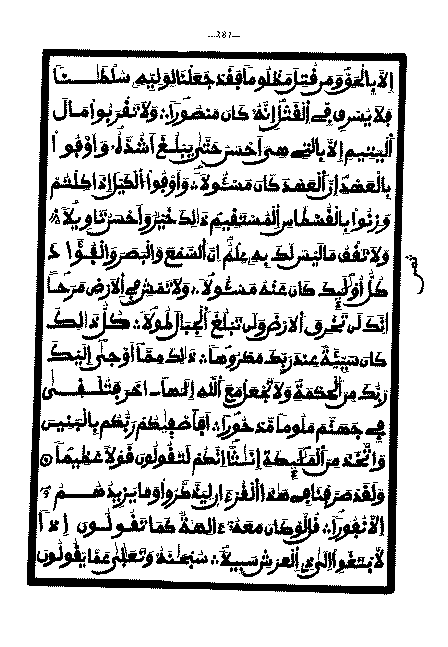 —281—
إلا بالحق ومن قتل مظلوما فقد جعلنا لوليه سلطنا
فلا يسرف في القتل إنه كان منصورا ولا تقربوا مال
اليتيم إلا بالتي هي أحسن حتى يبلغ أشده وأوفوا
بالعهد إن العهد كان مسئولا وأوفوا الكيل إذا كلتم
وزنوا بالقسطاس المستقيم ذلك خير وأحسن تاويلا
ولا تقف ما ليس لك به علم إن السمع والبصر والفؤاد
كل أولئك كان عنه مسئولا ولا تمش في الأرض مرحا
إنك لن تخرق الأرض ولن تبلغ الجبال طولا كل ذلك
كان سيئة عند ربك مكروها ذلك مما أوحى إليك
ربك من الحكمة ولا تجعل مع الله إلها ءاخر فتلقى
في جهنم ملوما مدحورا أفأصفيكم ربكم بالبنين
واتخذ من الملئكة إنثا إنكم لتقولون قولا عظيما
ولقد صرفنا في هذا القرءان ليذكروا وما يزيدهم
إلا نفورا قل لو كان معه ءالهة كما تقولون إذا
لابتغوا إلى ذي العرش سبيلا سبحنه وتعلى عما يقولون